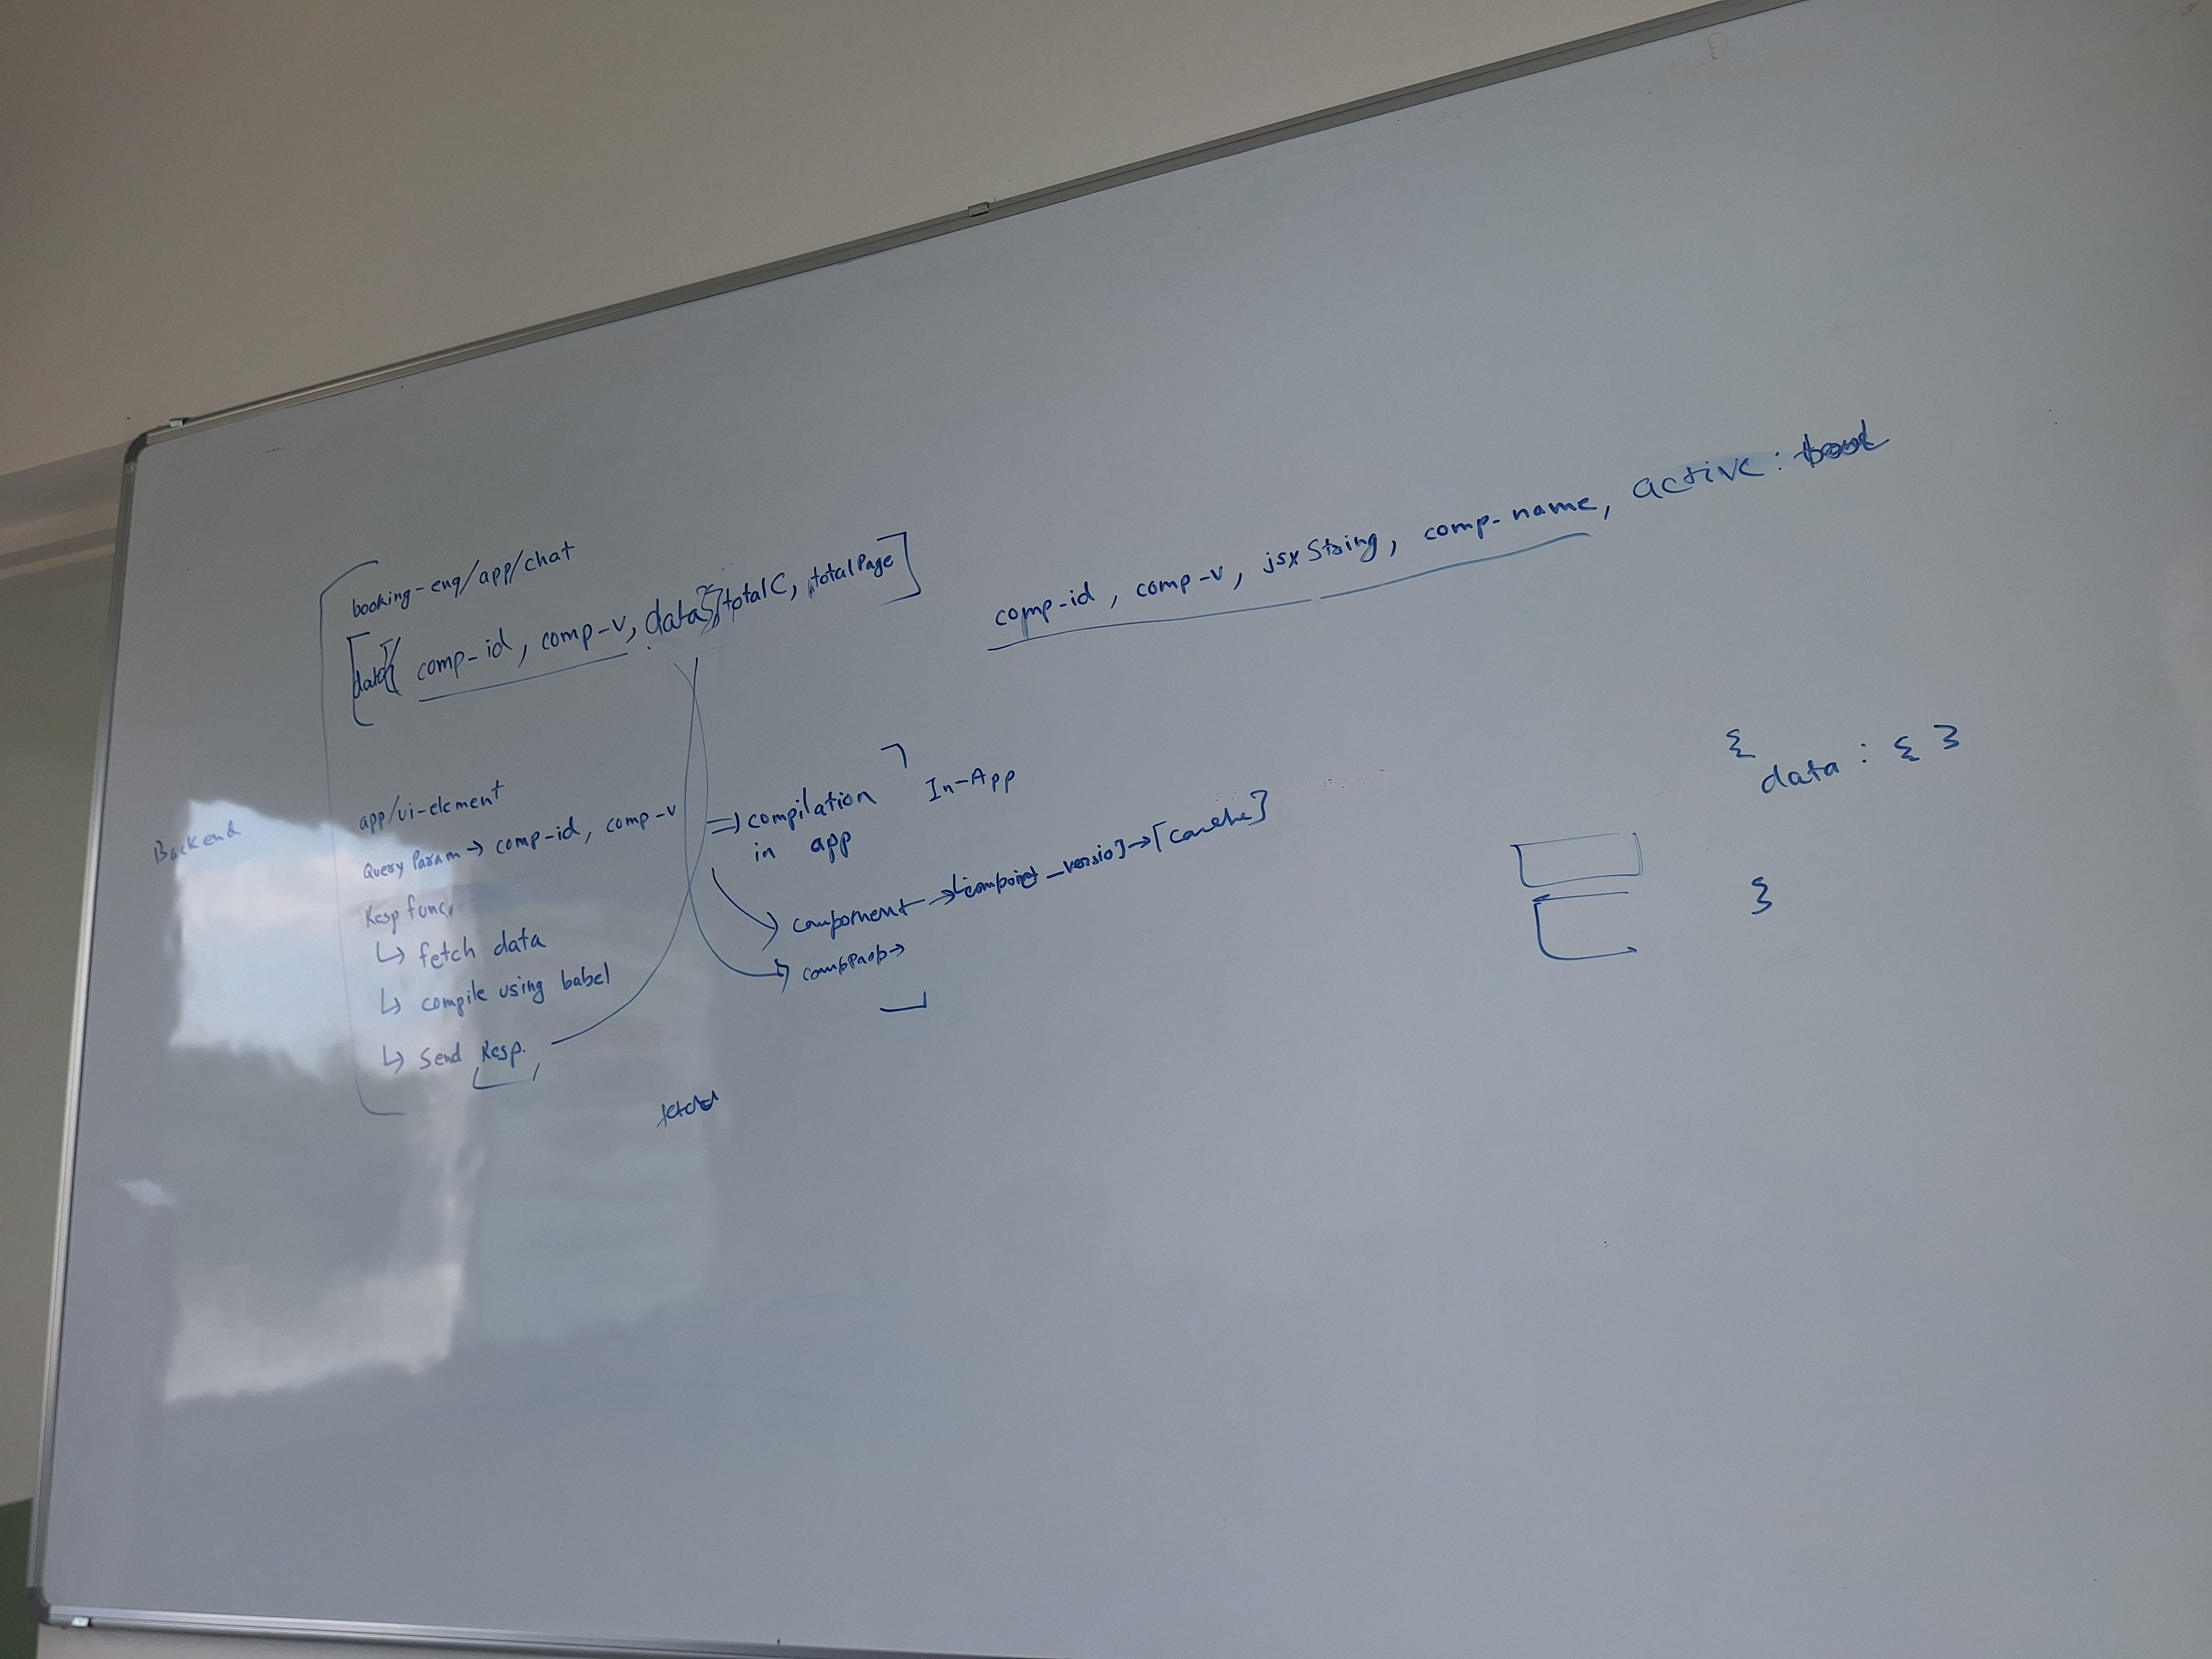 booking-eng/app/chat
[data[{ comp-id, comp-v, data}], totalC, totalPage]
comp-id, comp-v, jsxString, comp-name, active: bool
Backend
app/ui-element
Query Param → comp-id, comp-v
Resp func.
↳ fetch data
↳ compile using babel
↳ Send Resp.
⇒ compilation
in app
In-App
component → → [cache]
compProp →
{
data : { }
}